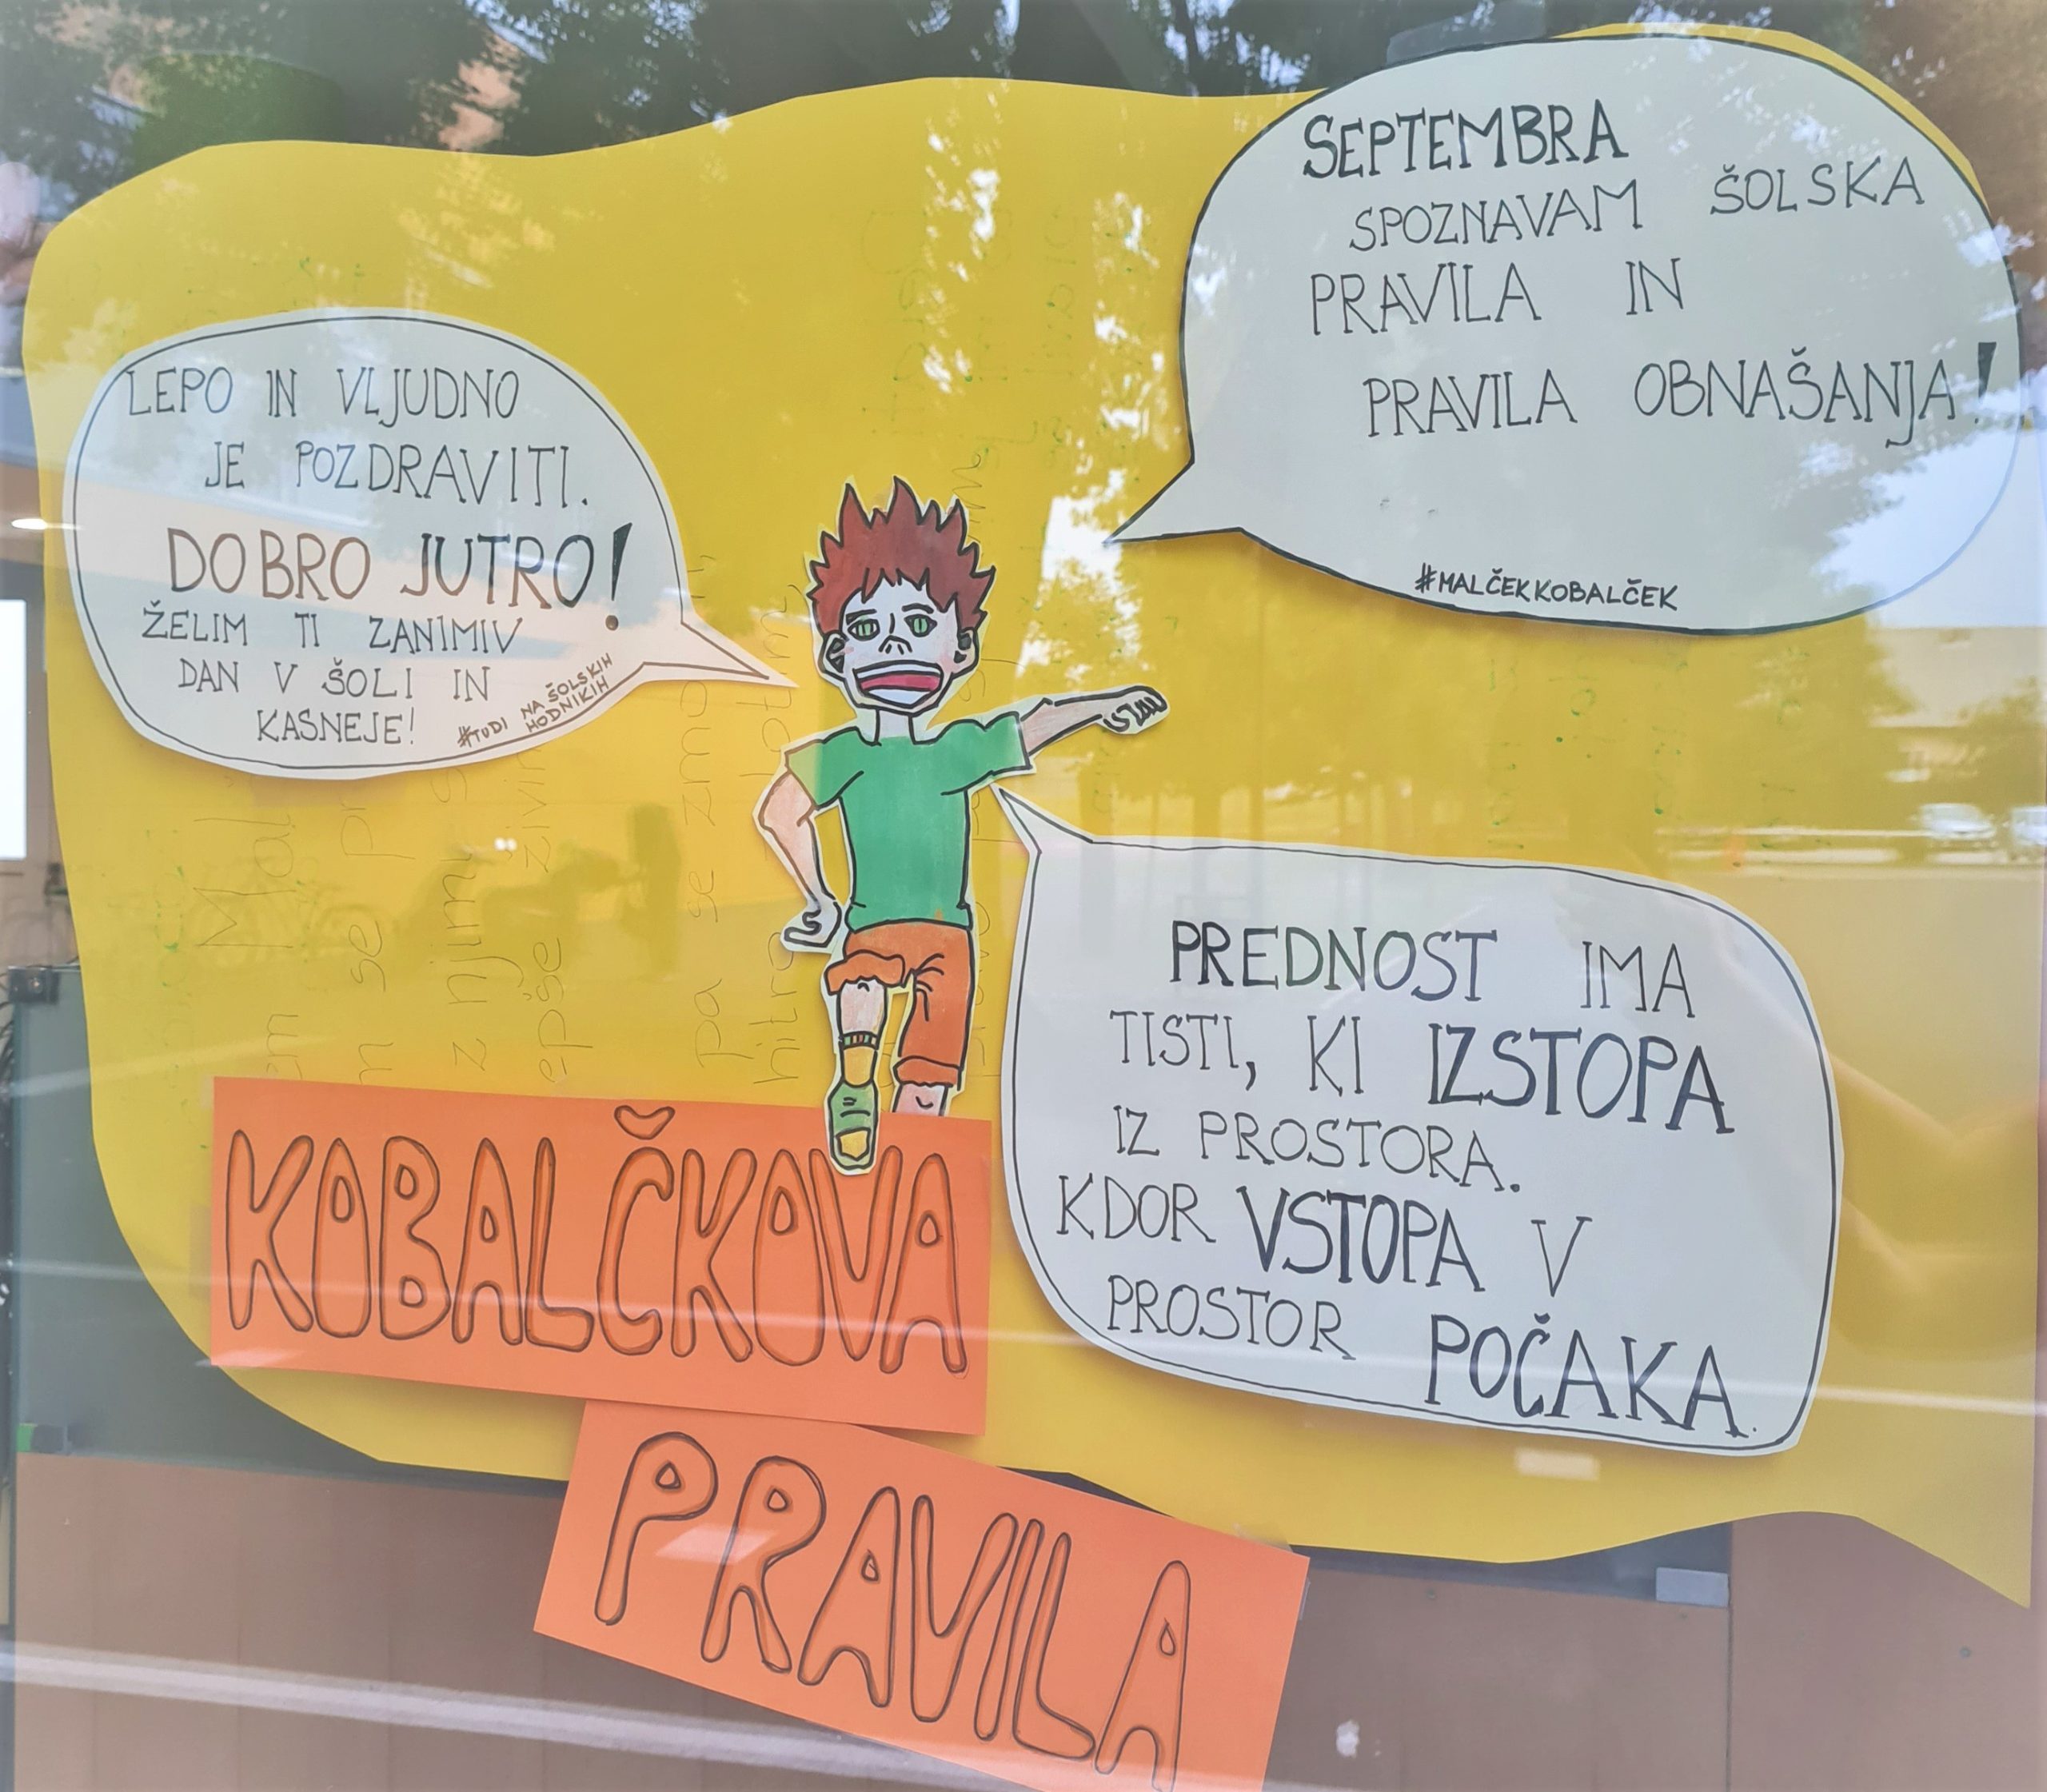 SEPTEMBRA
SPOZNAVAM ŠOLSKA
PRAVILA IN
PRAVILA OBNAŠANJA!
#MALČEKKOBALČEK
LEPO IN VLJUDNO
JE POZDRAVITI.
DOBRO JUTRO!
ŽELIM TI ZANIMIV
DAN V ŠOLI IN
KASNEJE!
#TUDI NA ŠOLSKIH
HODNIKIH
PREDNOST IMA
TISTI, KI IZSTOPA
IZ PROSTORA.
KDOR VSTOPA V
PROSTOR POČAKA.
KOBALČKOVA
PRAVILA